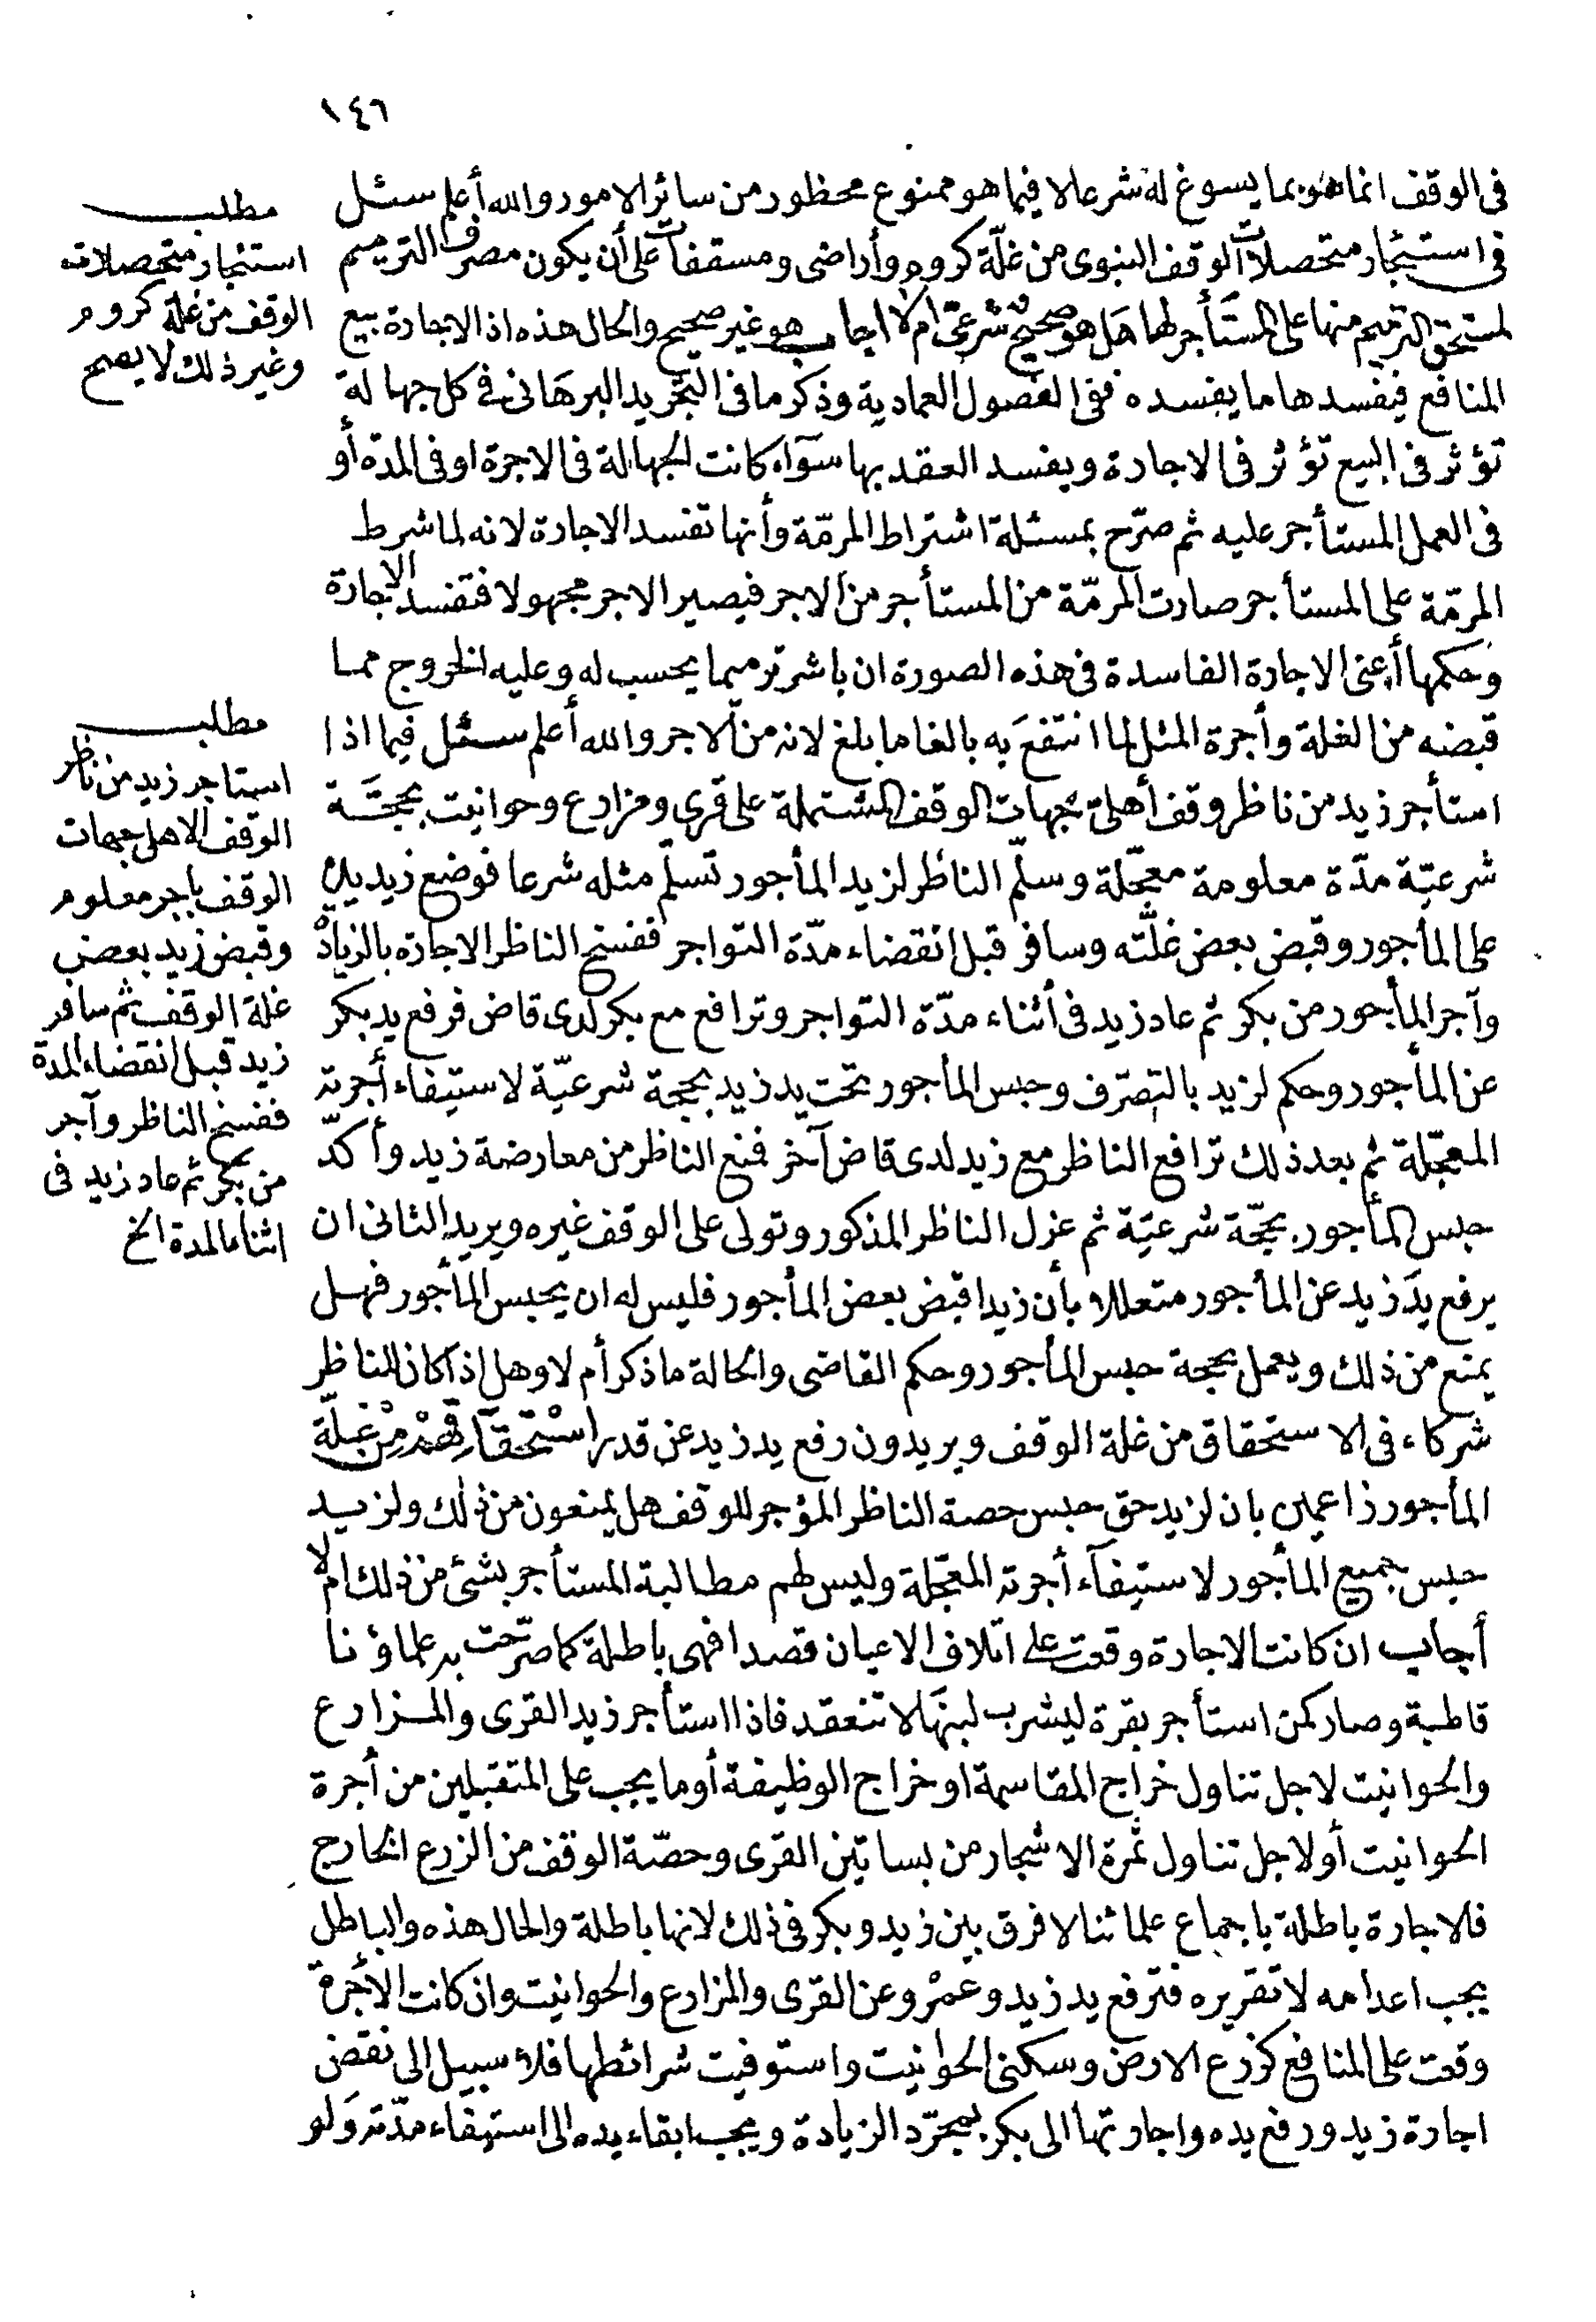 ١٤٦
فى الوقف انما هو بما يسوغ له شرعا لا فيما هو ممنوع محظور من سائر الامور والله أعلم سئل
فى استئجار متحصلات الوقف النبوى من غلّة كروم وأراضى ومسقفات على أن يكون مصرف الترميم
لمستحق الترميم منها على المستأجر لها هل هو صحيح شرعىّ ام لا اجاب هو غير صحيح والحال هذه اذ الاجارة بيع
المنافع فيفسدها ما يفسده ففى الفصول العمادية وذكر ما فى التجريد البرهانى فى كل جهالة
تؤثر فى البيع تؤثر فى الاجارة ويفسد العقد بها سوآء كانت الجهالة فى الاجرة او فى المدة أو
فى العمل المستأجر عليه ثم صرّح بمسئلة اشتراط المرمّة وأنها تفسد الاجارة لانه لما شرط
المرمّة على المستأجر صارت المرمّة من المستأجر من الاجر فيصير الاجر مجهولا فتفسد الاجارة
وحكمها أعنى الاجارة الفاسدة فى هذه الصورة ان باشر ترميما يحسب له وعليه الخروج مما
قبضه من الغلة وأجرة المثل لما انتفع به بالغا ما بلغ لانه من الاجر والله أعلم سئل فيما اذا
استأجر زيد من ناظر وقف أهلىّ جهات الوقف المشتملة على قرى ومزارع وحوانيت بحجّة
شرعيّة مدّة معلومة معجّلة وسلّم الناظر لزيد المأجور تسلّم مثله شرعا فوضع زيد يده
على المأجور وقبض بعض غلّته وسافر قبل انقضاء مدّة التواجر ففسخ الناظر الاجارة بالزيادة
وآجر المأجور من بكر ثم عاد زيد فى أثناء مدّة التواجر وترافع مع بكر لدى قاض فرفع يد بكر
عن المأجور وحكم لزيد بالتصرّف وحبس المأجور تحت يد زيد بحجة شرعيّة لاستيفاء أجرته
المعجّلة ثم بعد ذلك ترافع الناظر مع زيد لدى قاض آخر فمنع الناظر من معارضة زيد وأكدّ
حبس المأجور بحجّة شرعيّة ثم عزل الناظر المذكور وتولى على الوقف غيره ويريد الثانى ان
يرفع يد زيد عن المأجور متعللا بأن زيدا قبض بعض المأجور فليس له ان يحبس المأجور فهل
يمنع من ذلك ويعمل بحجة حبس المأجور وحكم القاضى والحالة ما ذكر أم لا وهل اذا كان للناظر
شركاء فى الاستحقاق من غلة الوقف ويريدون رفع يد زيد عن قدر استحقاقهم من غلّة
المأجور زاعمين بان لزيد حق حبس حصة الناظر المؤجر للوقف هل يمنعون من ذلك ولزيد
حبس جميع المأجور لاستيفآء أجرته المعجّلة وليس لهم مطالبة المستأجر بشئ من ذلك ام لا
أجاب ان كانت الاجارة وقعت على اتلاف الاعيان قصدا فهى باطلة كما صرّحت به علماؤنا
قاطبة وصار كمن استأجر بقرة ليشرب لبنها لا تنعقد فاذا استأجر زيد القرى والمزارع
والحوانيت لاجل تناول خراج المقاسمة او خراج الوظيفة أو ما يجب على المتقبلين من أجرة
الحوانيت أو لاجل تناول ثمرة الاشجار من بساتين القرى وحصّة الوقف من الزرع الخارج
فلاجارة باطلة باجماع علمائنا لا فرق بين زيد وبكر فى ذلك لانها باطلة والحال هذه والباطل
يجب اعدامه لا تقريره فترفع يد زيد وعمرو عن القرى والمزارع والحوانيت وان كانت الأجرة
وقعت على المنافع كزرع الارض وسكنى الحوانيت واستوفيت شرائطها فلا سبيل الى نقض
اجارة زيد ورفع يده واجارتها الى بكر بمجرّد الزيادة ويجب ابقاء يده الى استيفاء مدّته ولو
مطلب
استئجار متحصلات
الوقف من غلة كروم
وغير ذلك لا يصح
مطلب
استاجر زيد من ناظر
الوقف الاهلى جهات
الوقف باجر معلوم
وقبض زيد بعض
غلة الوقف ثم سافر
زيد قبل انقضاء المدة
ففسخ الناظر وآجر
من بكر ثم عاد زيد فى
اثناء المدة الخ